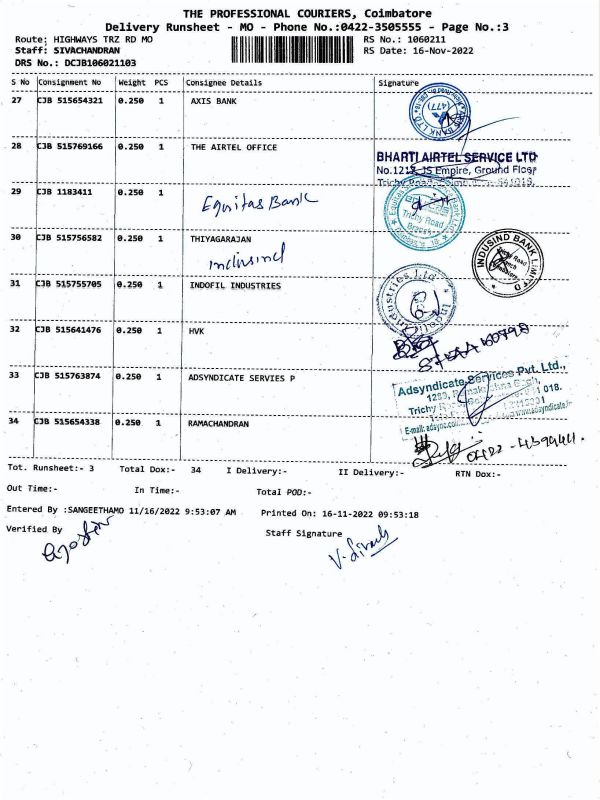 THE PROFESSIONAL COURIERS, Coimbatore
Delivery Runsheet - MO - Phone No.:0422-3505555 - Page No.:3
Route: HIGHWAYS TRZ RD MO RS No.: 1060211
Staff: SIVACHANDRAN RS Date: 16-Nov-2022
DRS No.: DCJB106021103
S No Consignment No Weight PCS Consignee Details Signature
27 CJB 515654321 0.250 1 AXIS BANK
28 CJB 515769166 0.250 1 THE AIRTEL OFFICE
BHARTI AIRTEL SERVICE LTD
JS Empire, Ground Floor
29 CJB 1183411 0.250 1
Equitas Bank
Trichy Road
30 CJB 515756582 0.250 1 THIYAGARAJAN
Indusind
INDUSIND BANK LIMITED
31 CJB 515755705 0.250 1 INDOFIL INDUSTRIES
32 CJB 515641476 0.250 1 HVK
33 CJB 515763874 0.250 1 ADSYNDICATE SERVIES P
Adsyndicate Services Pvt. Ltd.,
34 CJB 515654338 0.250 1 RAMACHANDRAN
Tot. Runsheet:- 3 Total Dox:- 34 I Delivery:- II Delivery:- RTN Dox:-
Out Time:- In Time:- Total POD:-
Entered By :SANGEETHAMO 11/16/2022 9:53:07 AM Printed On: 16-11-2022 09:53:18
Verified By Staff Signature